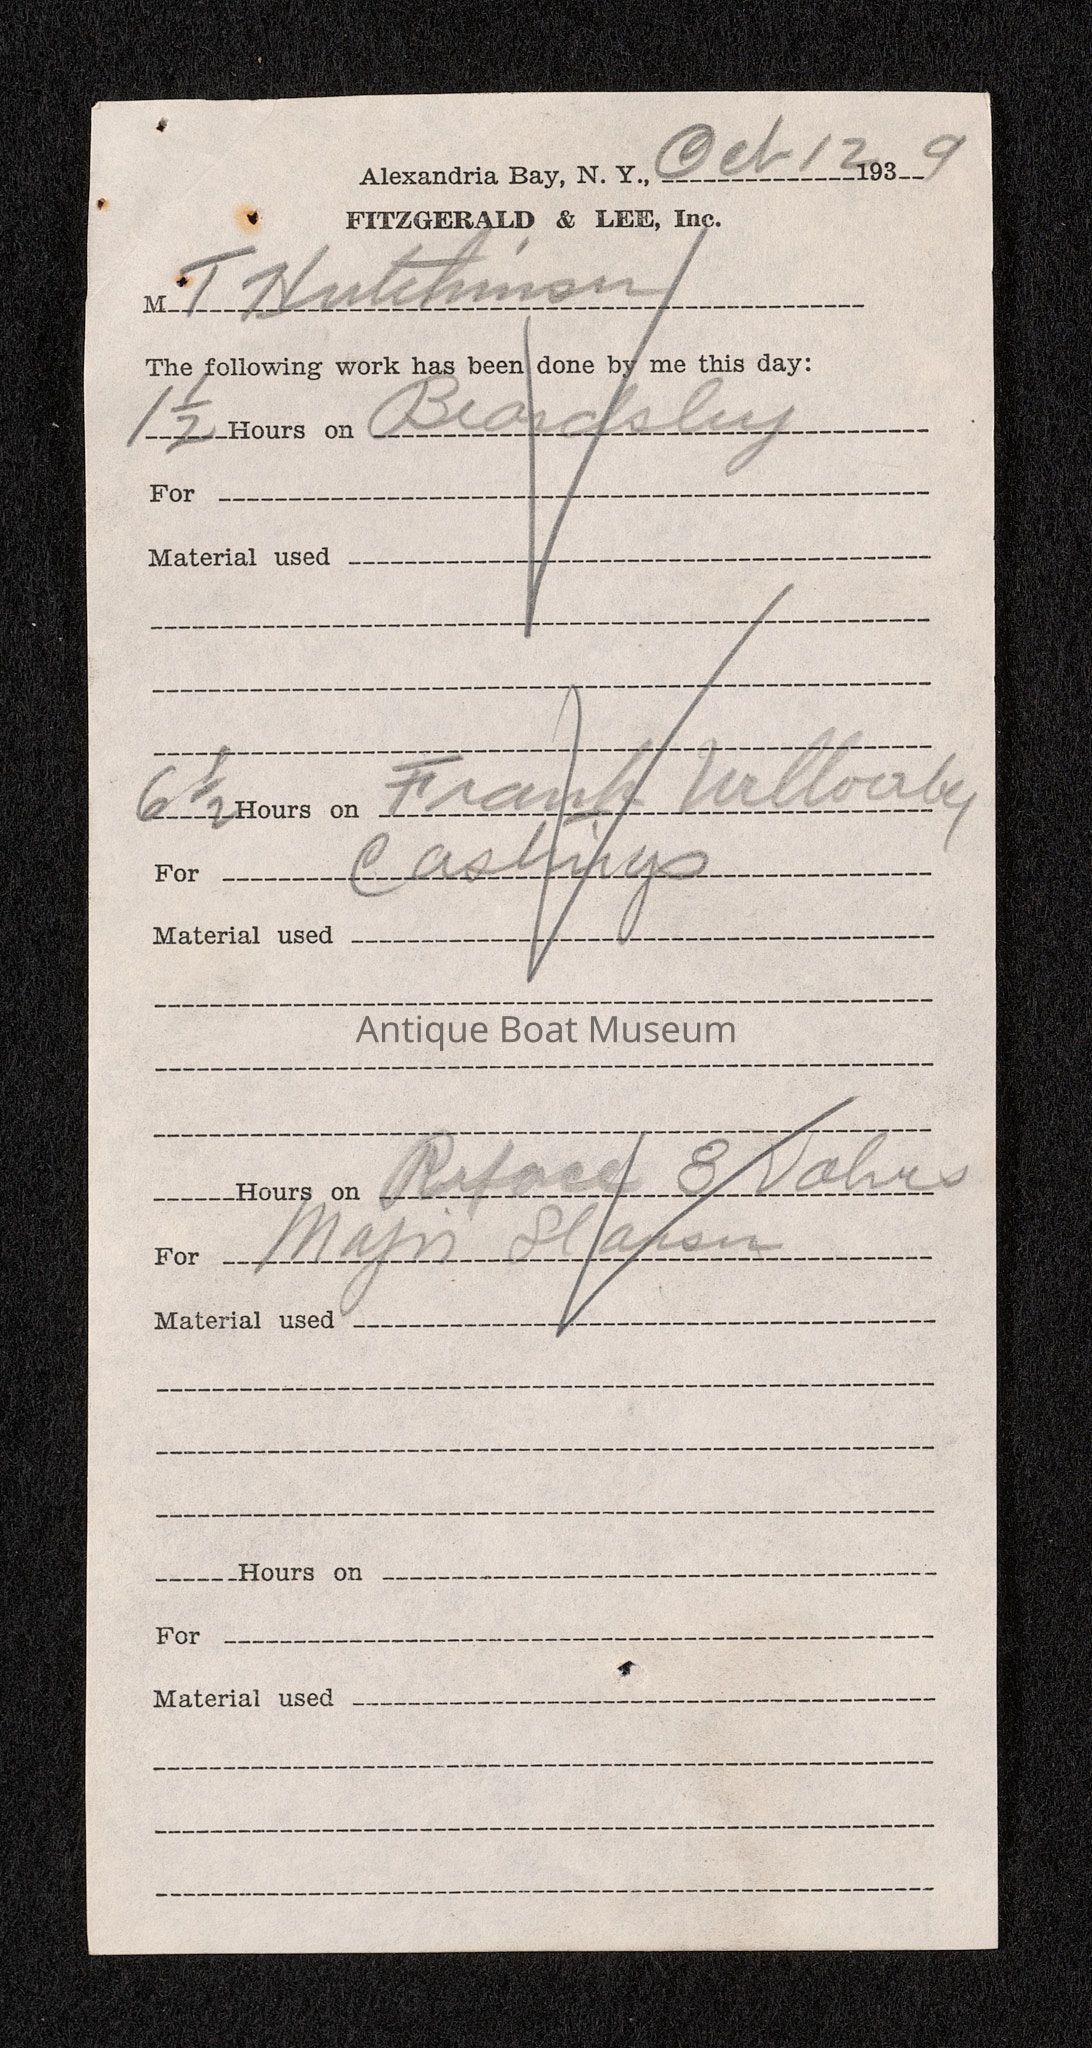 Alexandria Bay, N. Y., Oct 12 1939
FITZGERALD & LEE, Inc.
M T Hutchinson
The following work has been done by me this day:
1 1/2 Hours on Beardsley
For
Material used
6 1/2 Hours on Frank Willoarby
For Castings
Material used
Antique Boat Museum
Hours on Reface 8 Valves
For Major
Material used
Hours on
For
Material used